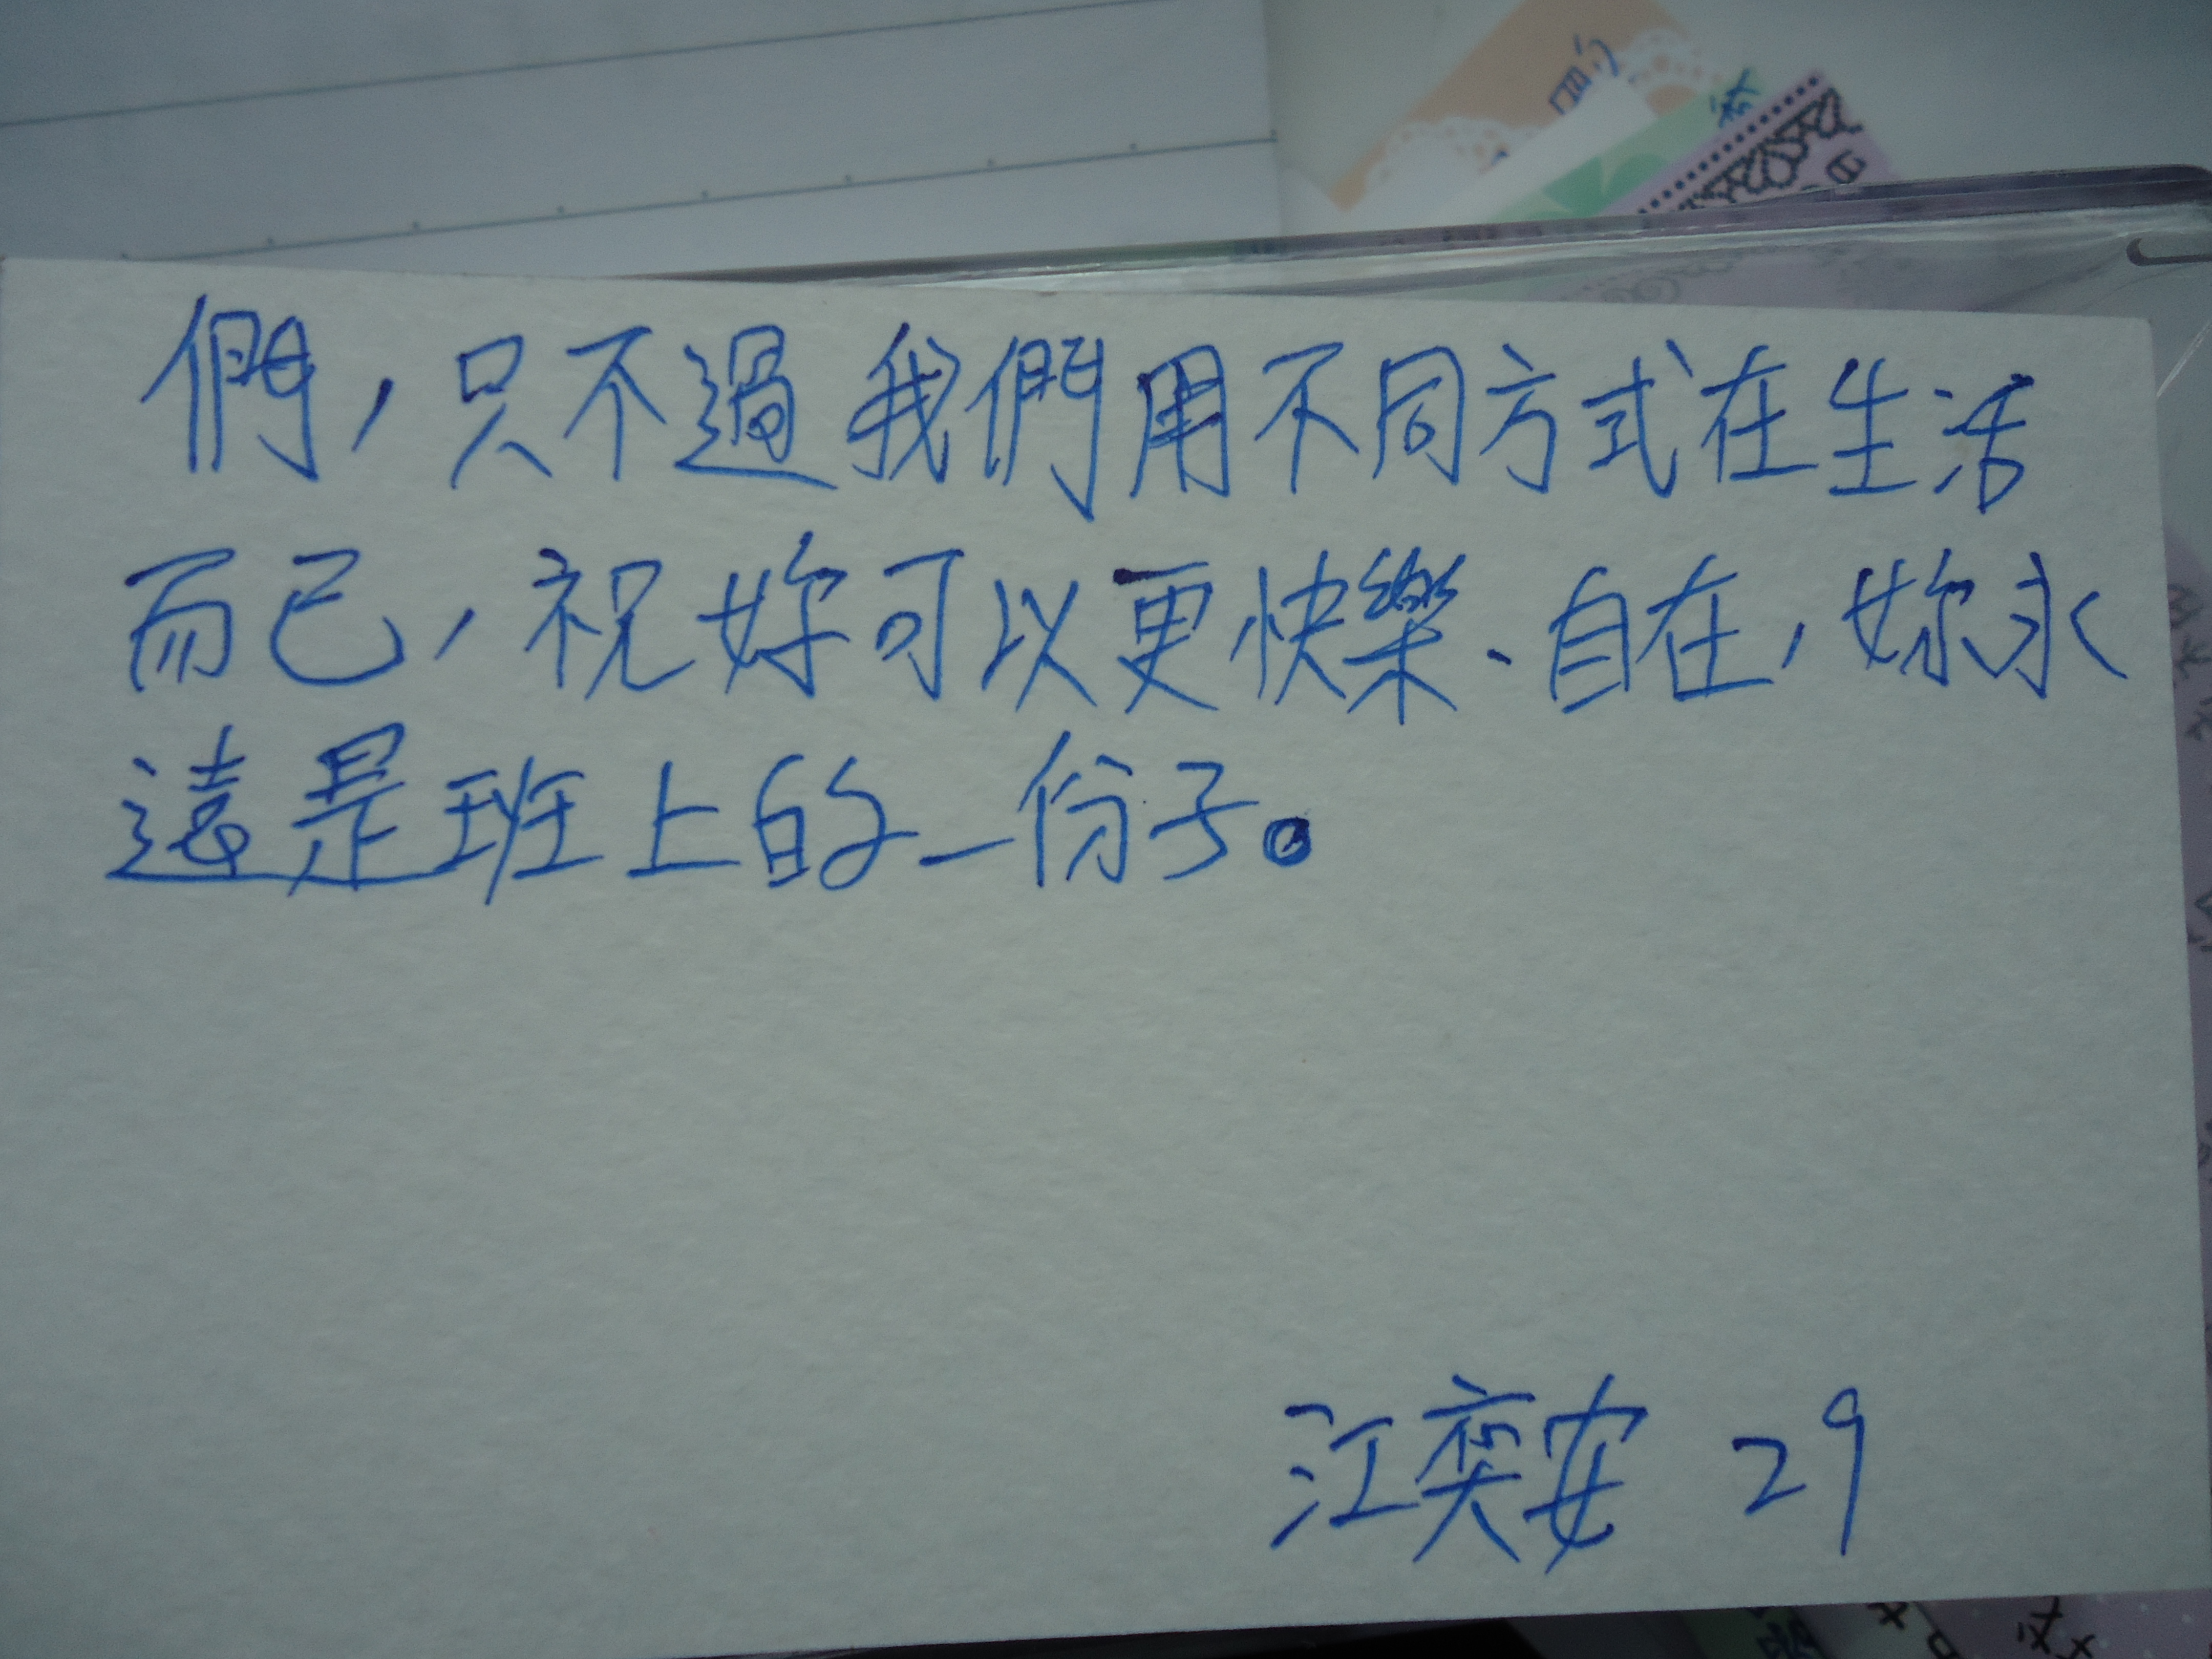 們，只不過我們用不同方式在生活
而已，祝妳可以更快樂、自在，妳永
遠是班上的一份子。
江奕安 29